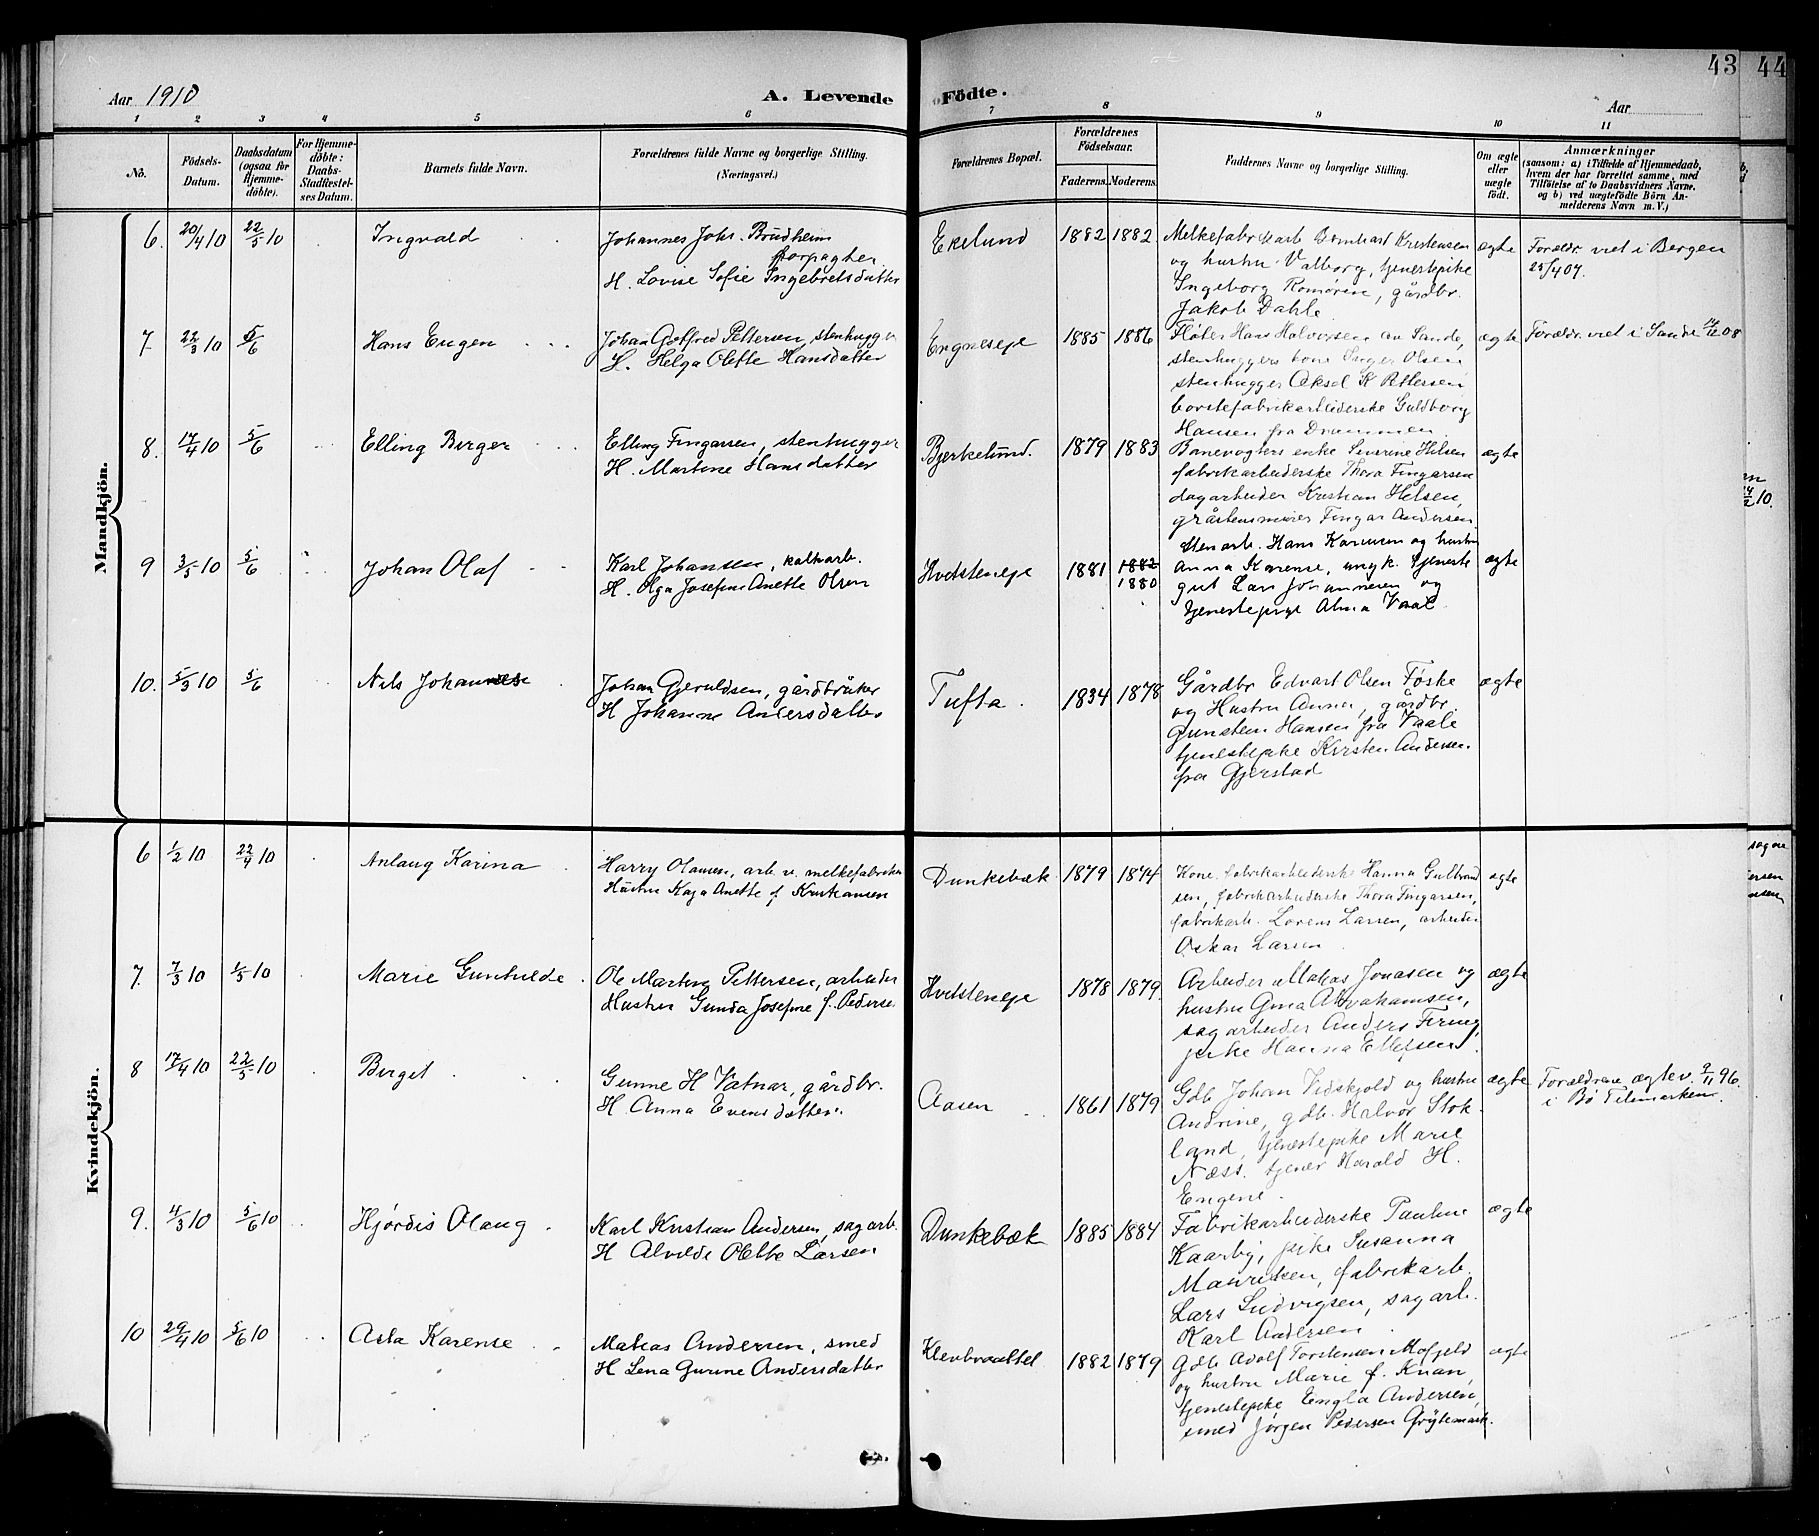 43
44
Aar 1910
A. Levende
Födte.
Aar
1 2 3 4 5 6 7 8 9 10 11
No.
Födsels-
Datum.
Daabsdatum
(ogsaa for
Hjemme-
döbte).
For Hjemme-
döbte:
Daabs-
Stadfæstel-
ses Datum.
Barnets fulde Navn.
Forældrenes fulde Navne og borgerlige Stilling.
(Næringsvei.)
Forældrenes Bopæl.
Forældrenes
Födselsaar.
Faderens. Moderens.
Faddernes Navne og borgerlige Stilling.
Om ægte
eller
uægte
födt.
Anmærkninger
(saasom: a) i Tilfælde af Hjemmedaab,
hvem der har forrettet samme, med
Tilföielse af to Daabsvidners Navne.
og b) ved uægtefödte Börn An-
melderens Navn m. V.)
Mandkjön.
6. 20/4 10 22/5 10 Ingvald
Johannes Johs. Brudheim
forpagter
H. Lovise Sofie Ingebretsdatter
Ekelund 1882 1882
Melkefabrikarb Bernhart Kristensen
og hustru Valborg, tjenestepike
Ingeborg Romören, gårdbr.
Jakob Dahle
ægte
Foreldr. viet i Bergen
25/4 07.
7. 22/3 10 5/6 Hans Eugen
Johan Gotfred Pettersen, stenhugger
H. Helga Olette Hansdatter
Engneseje 1885 1886
Fløter Hans Halvorsen av Sande,
stenhuggers kone Inger Olsen
stenhugger Aksel K Pettersen
borstefabrikarbeiderske Guldborg
Hansen fra Drammen
ægte
Foreldr. viet i Sande 08
8. 17/4 10 5/6 Elling Birger
Elling Fingarsen, stenhugger
H. Martine Hansdatter
Bjerkelund. 1879 1883
Banevogters enke Severine Helsen
fabrikarbeiderske Thora Fingarsen
dagarbeider Kristian Helsen,
gråstensmurer Fingar Andersen
ægte
9 3/5 10 5/6 Johan Olaf
Karl Johansen, kalkarb.
H. Olga Josefine Anette Olsen
Hvitsteneje 1881 1882
1880
Stenarb. Hans Karensen og hustru
Anna Karense, ungk. tjeneste
gut Lars Johannesen og
tjenestepige Alma Vaal
ægte
10. 5/3 10 5/6 Nils Johannes
Johan Gjeruldsen, gårdbruker
H Johanne Andersdatter
Tufta. 1834 1878
Gårdbr Edvart Olsen Føske
og Hustru Anna, gårdbr.
Gunsten Hansen fra Vaale
tjenestepike Kirsten Andersen
fra Gjerstad
ægte
Kvindekjön.
6 1/2 10 22/4 10 Anlaug Karina
Harry Olausen, arb. v. melkefabriken
Hustru Kaja Anette f. Kristiansen
Dunkebæk 1879 1874
Kone fabrikarbeiderske Hanna Gulbrand
sen, fabrikarbeiderske Thora Fingarsen,
fabrikarb. Lorens Larsen, arbeider
Oskar Larsen
ægte
7. 7/3 10 1/5 10 Marie Gunhilde
Ole Martin Pettersen, arbeider
Hustru Gunda Josefine f. Pederse
Hvitsteneje 1878 1879.
Arbeider Matias Jonasen og
hustru Gina Abrahamsen,
sagarbeider Anders Firing,
pike Hanna Ellefsen
ægte
8 17/4 10 22/5 10 Birgit
Gunne H Vatnar, gårdbr.
H. Anna Evensdatter
Aasen 1861 1879
Gdb. Johan Vidskjold og hustru
Andrine, gdb. Halvor Stok-
land, tjenestepike Marie
Næss. tjener Harald H.
Engene.
ægte
Forældrene ægtev. 9/11 96.
i Bø Telemarken.
9. 4/3 10 5/6 10 Hjørdis Olaug
Karl Kristian Andersen, sagarb.
H Alvilde Olette Larsen
Dunkebæk 1885 1884
Fabrikarbeiderske Pauline
Kaarby, pike Susanna
Mauritsen, fabrikarb.
Lars Ludvigsen, sagarb.
Karl Andersen
ægte
10 29/4 10 5/6 10 Asta Karense
Matias Andersen, smed
H Lena Gurine Andersdatter
Klevbraattel 1882 1879
Gdb. Adolf Torstensen Mofjeld
og hustru Marie f. Knan,
tjenestepike Engla Andersen,
smed Jørgen Pedersen Grytemark.
ægte